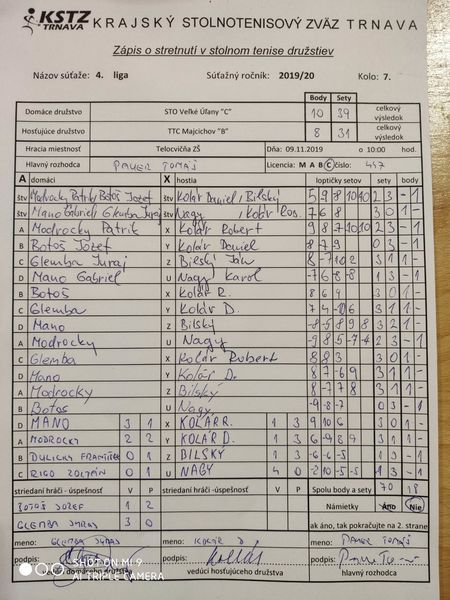 KSTZ TRNAVA KRAJSKÝ STOLNOTENISOVÝ ZVÄZ TRNAVA
Zápis o stretnutí v stolnom tenise družstiev
Názov súťaže: 4. liga Súťažný ročník: 2019/20 Kolo: 7.
Body Sety
Domáce družstvo STO Veľké Úľany "C" 10 39 celkový výsledok
Hosťujúce družstvo TTC Majcichov "B" 8 31 celkový výsledok
Hracia miestnosť Telocvičňa ZŠ Dňa: 09.11.2019 o 10:00 hod.
Hlavný rozhodca PAVER TOMÁŠ Licencia: M A B C číslo: 457
A domáci X hostia loptičky setov sety body
štv Modrocky Patrik Botoš Jozef štv Kolár Daniel / Bilský 5 9 8 10 10 2 3 - 1
štv Mano Gabriel Glemba Juraj štv Nagy 7 6 8 3 0 1 -
A Modrocky Patrik X Kolár Robert 9 8 7 10 10 2 3 - 1
B Botoš Józef Y Kolár Daniel 8 7 9 0 3 - 1
C Glemba Juraj Z Bilský Ján 3 1 1 -
D Mano Gabriel U Nagy Karol -7 6 -8 -8 1 3 - 1
B Botoš X Kolár R. 8 6 9 3 0 1 -
C Glemba Y Kolár D. 7 4 -10 6 3 1 1 -
D Mano Z Bilský -8 -5 8 9 8 3 2 1 -
A Modrocky U Nagy -9 8 5 -7 -4 2 3 - 1
C Glemba X Kolár Robert 8 8 3 3 0 1 -
D Mano Y Kolár D. 8 7 -6 9 3 1 1 -
A Modrocky Z Bilský 8 -7 7 8 3 1 1 -
B Botos U Nagy -9 -8 -7 0 3 - 1
D MANO 3 1 X KOLÁR R. 1 3 9 10 6 3 0 1 -
A MODROCKY 2 2 Y KOLÁR D. 1 3 6 -9 8 9 3 1 1 -
B DULICKY FRANTIŠEK 0 1 Z BILSKY 1 3 -6 -6 -5 1 3 - 1
C RIGO ZOLTÁN 0 1 U NAGY 4 0 -2 10 -5 -5 1 3 - 1
striedaní hráči - úspešnosť V P striedaní hráči - úspešnosť V P Spolu body a sety 70 18
BOTOŠ JOZEF 1 2 Námietky Áno Nie
GLEMBA JURAJ 3 0 ak áno, tak pokračujte na 2. strane
meno: GLEMBA JURAJ meno: KOLÁR D meno: PAVER TOMÁŠ
podpis: podpis: podpis:
domáceho družstva vedúci hosťujúceho družstva hlavný rozhodca
SHOT ON MI 9
AI TRIPLE CAMERA